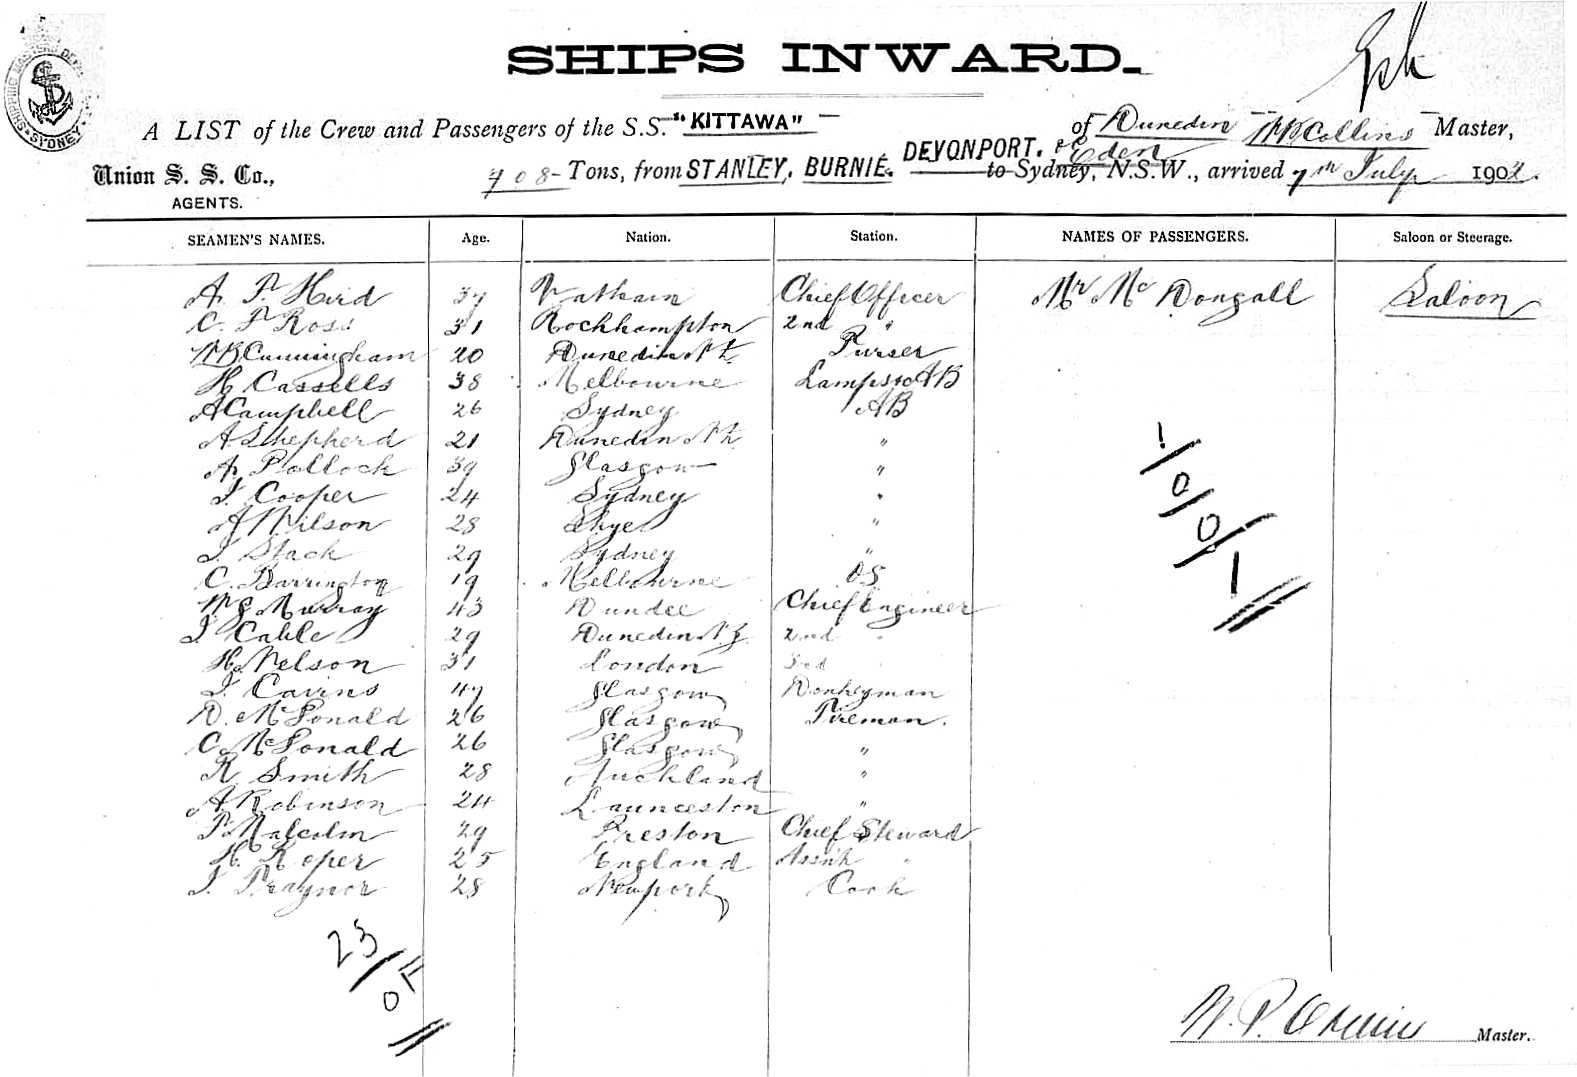 SHIPPING MASTERS DEPT. SYDNEY
SHIPS INWARD.
A LIST of the Crew and Passengers of the S.S. "KITTAWA" of Dunedin Collins Master,
Union S. S. Co., 908 Tons, from STANLEY, BURNIE. DEVONPORT. Eden to Sydney, N.S.W., arrived 7th July 1902.
AGENTS.
SEAMEN'S NAMES. Age. Nation. Station. NAMES OF PASSENGERS. Saloon or Steerage.
A. P. Hird 37 Chief Officer Mr Mc Dongall Saloon
C. P. Ross 31 Rockhampton 2nd "
Cunningham 20 Dunedin N Z. Purser
H Cassells 38 Melbourne Lamps & AB
A Campbell 26 Sydney AB
A Shepherd 21 Dunedin N Z "
A. Pollock 39 Glasgow "
J. Cooper 24 Sydney "
A Wilson 28 Skye "
J. Stack 29 Sydney "
C. Darrington 19 Melbourne OS
Murray 43 Dundee Chief Engineer
J. Cable 29 Dunedin N.Z. 2nd "
H. Nelson 31 London 3rd "
J. Cairns 47 Glasgow Donkeyman
D. McDonald 26 Glasgow Fireman.
C. McDonald 26 Glasgow "
R Smith 28 Auckland "
A. Robinson 24 Launceston "
P. Malcolm 29 Preston Chief Steward
H. Roper 25 England Asst "
J. Traynor 28 Newport Cook
1/0/0/1
23/
Master.